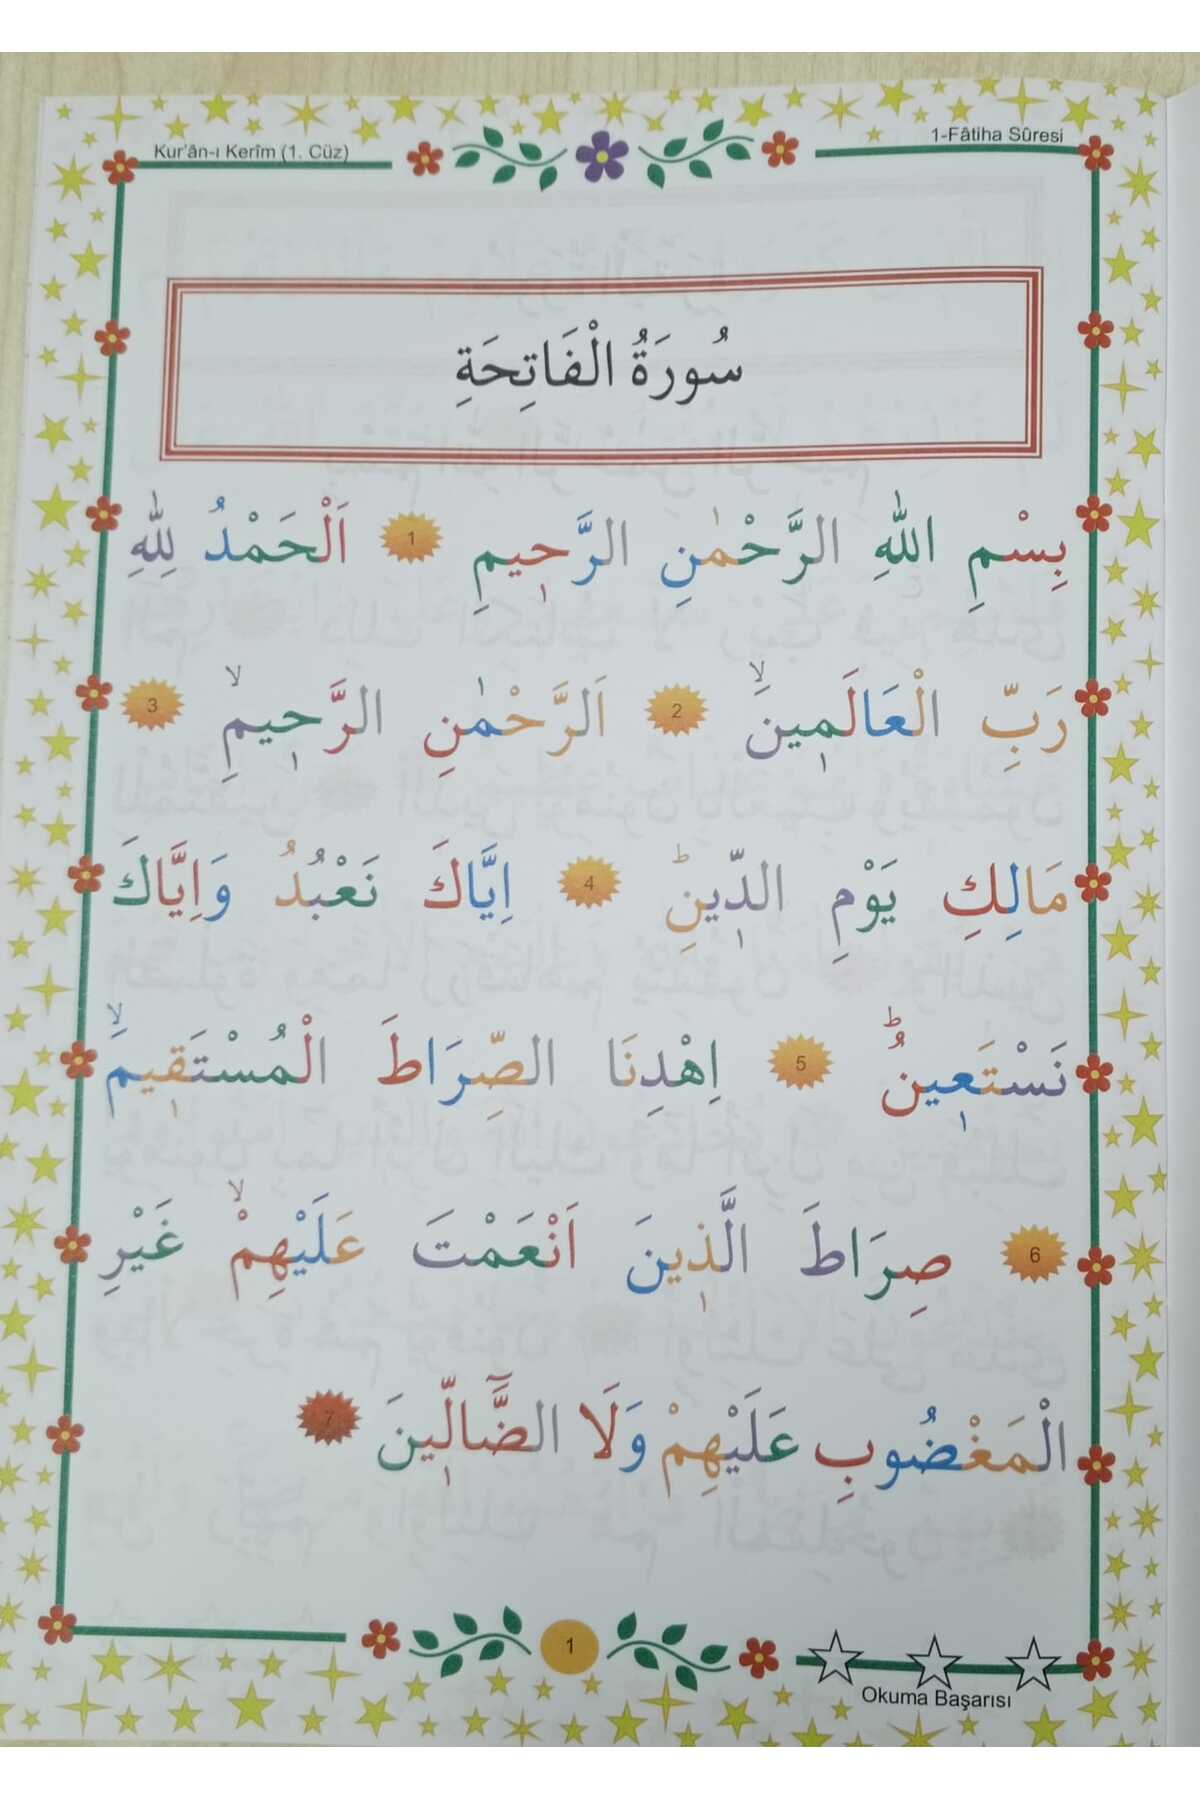 Kur'ân-ı Kerîm (1. Cüz)
1-Fâtiha Sûresi
سُورَةُ الْفَاتِحَةِ
بِسْمِ اللّٰهِ الرَّحْمٰنِ الرَّح۪يمِ 1 اَلْحَمْدُ لِلّٰهِ
رَبِّ الْعَالَم۪ينَۙ 2 اَلرَّحْمٰنِ الرَّح۪يمِۙ 3
مَالِكِ يَوْمِ الدّ۪ينِۜ 4 اِيَّاكَ نَعْبُدُ وَاِيَّاكَ
نَسْتَع۪ينُۜ 5 اِهْدِنَا الصِّرَاطَ الْمُسْتَق۪يمَۙ
6 صِرَاطَ الَّذ۪ينَ اَنْعَمْتَ عَلَيْهِمْۙ غَيْرِ
الْمَغْضُوبِ عَلَيْهِمْ وَلَا الضَّٓالّ۪ينَ 7
1
Okuma Başarısı